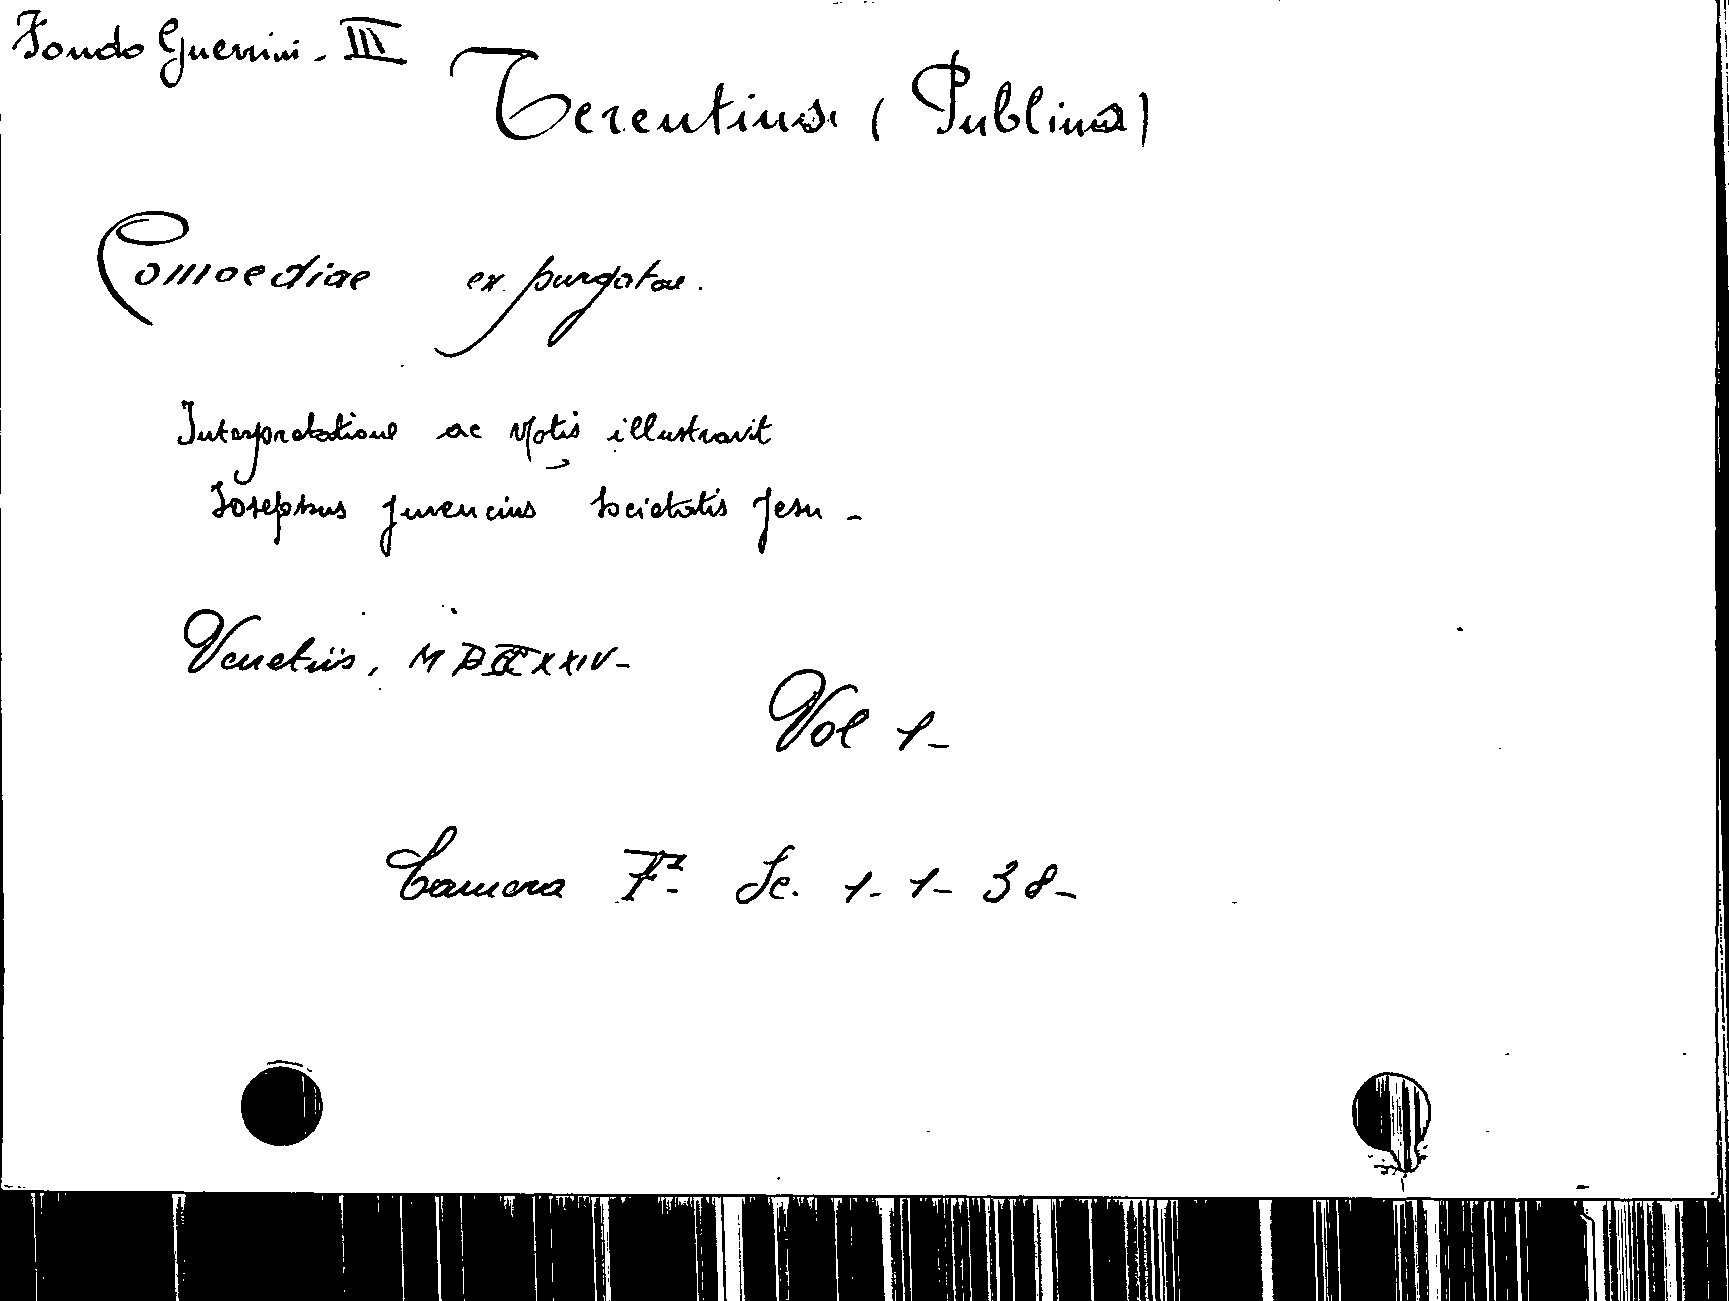 Fondo Guerrini - III
Terentius (Publius)
Comoediae expurgatae.
Interpretatione ac Notis illustravit
Josephus Juvencius Societatis Jesu -
Venetiis, MDCCXXIV -
Vol 1 -
Camera Fª Sc. 1 - 1 - 38 -